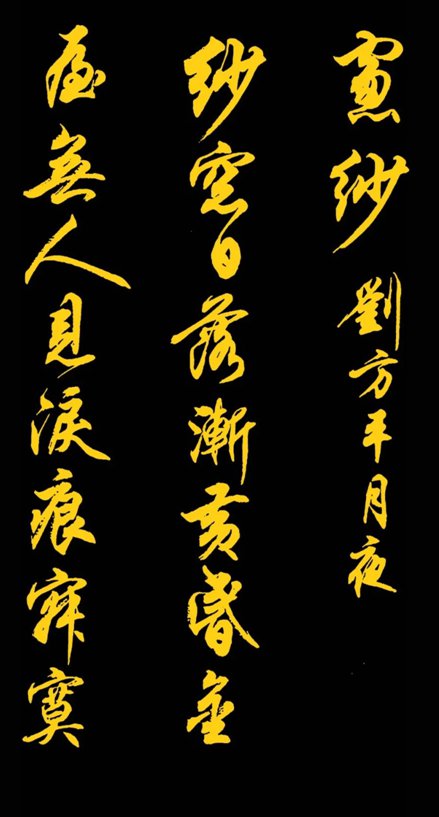 窗紗 劉方平月夜
紗窗日落漸黃昏金
屋無人見淚痕寂寞